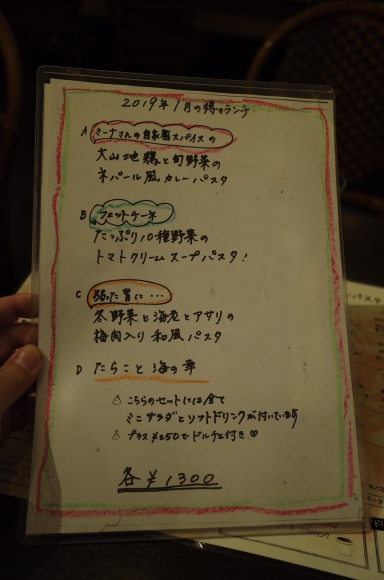 2019年1月の得々ランチ
A ミーナさんの自家製スパイスの
大山地鶏と旬野菜の
ネパール風カレーパスタ
B フェットチーネ
たっぷり10種野菜の
トマトクリームスープパスタ!
C 弱った胃に…
冬野菜と海老とアサリの
梅肉入り和風パスタ
D たらこと海の幸
こちらのセットには全て
ミニサラダとソフトドリンクが付いています
プラス¥250でドルチェ付き♡
各¥1300